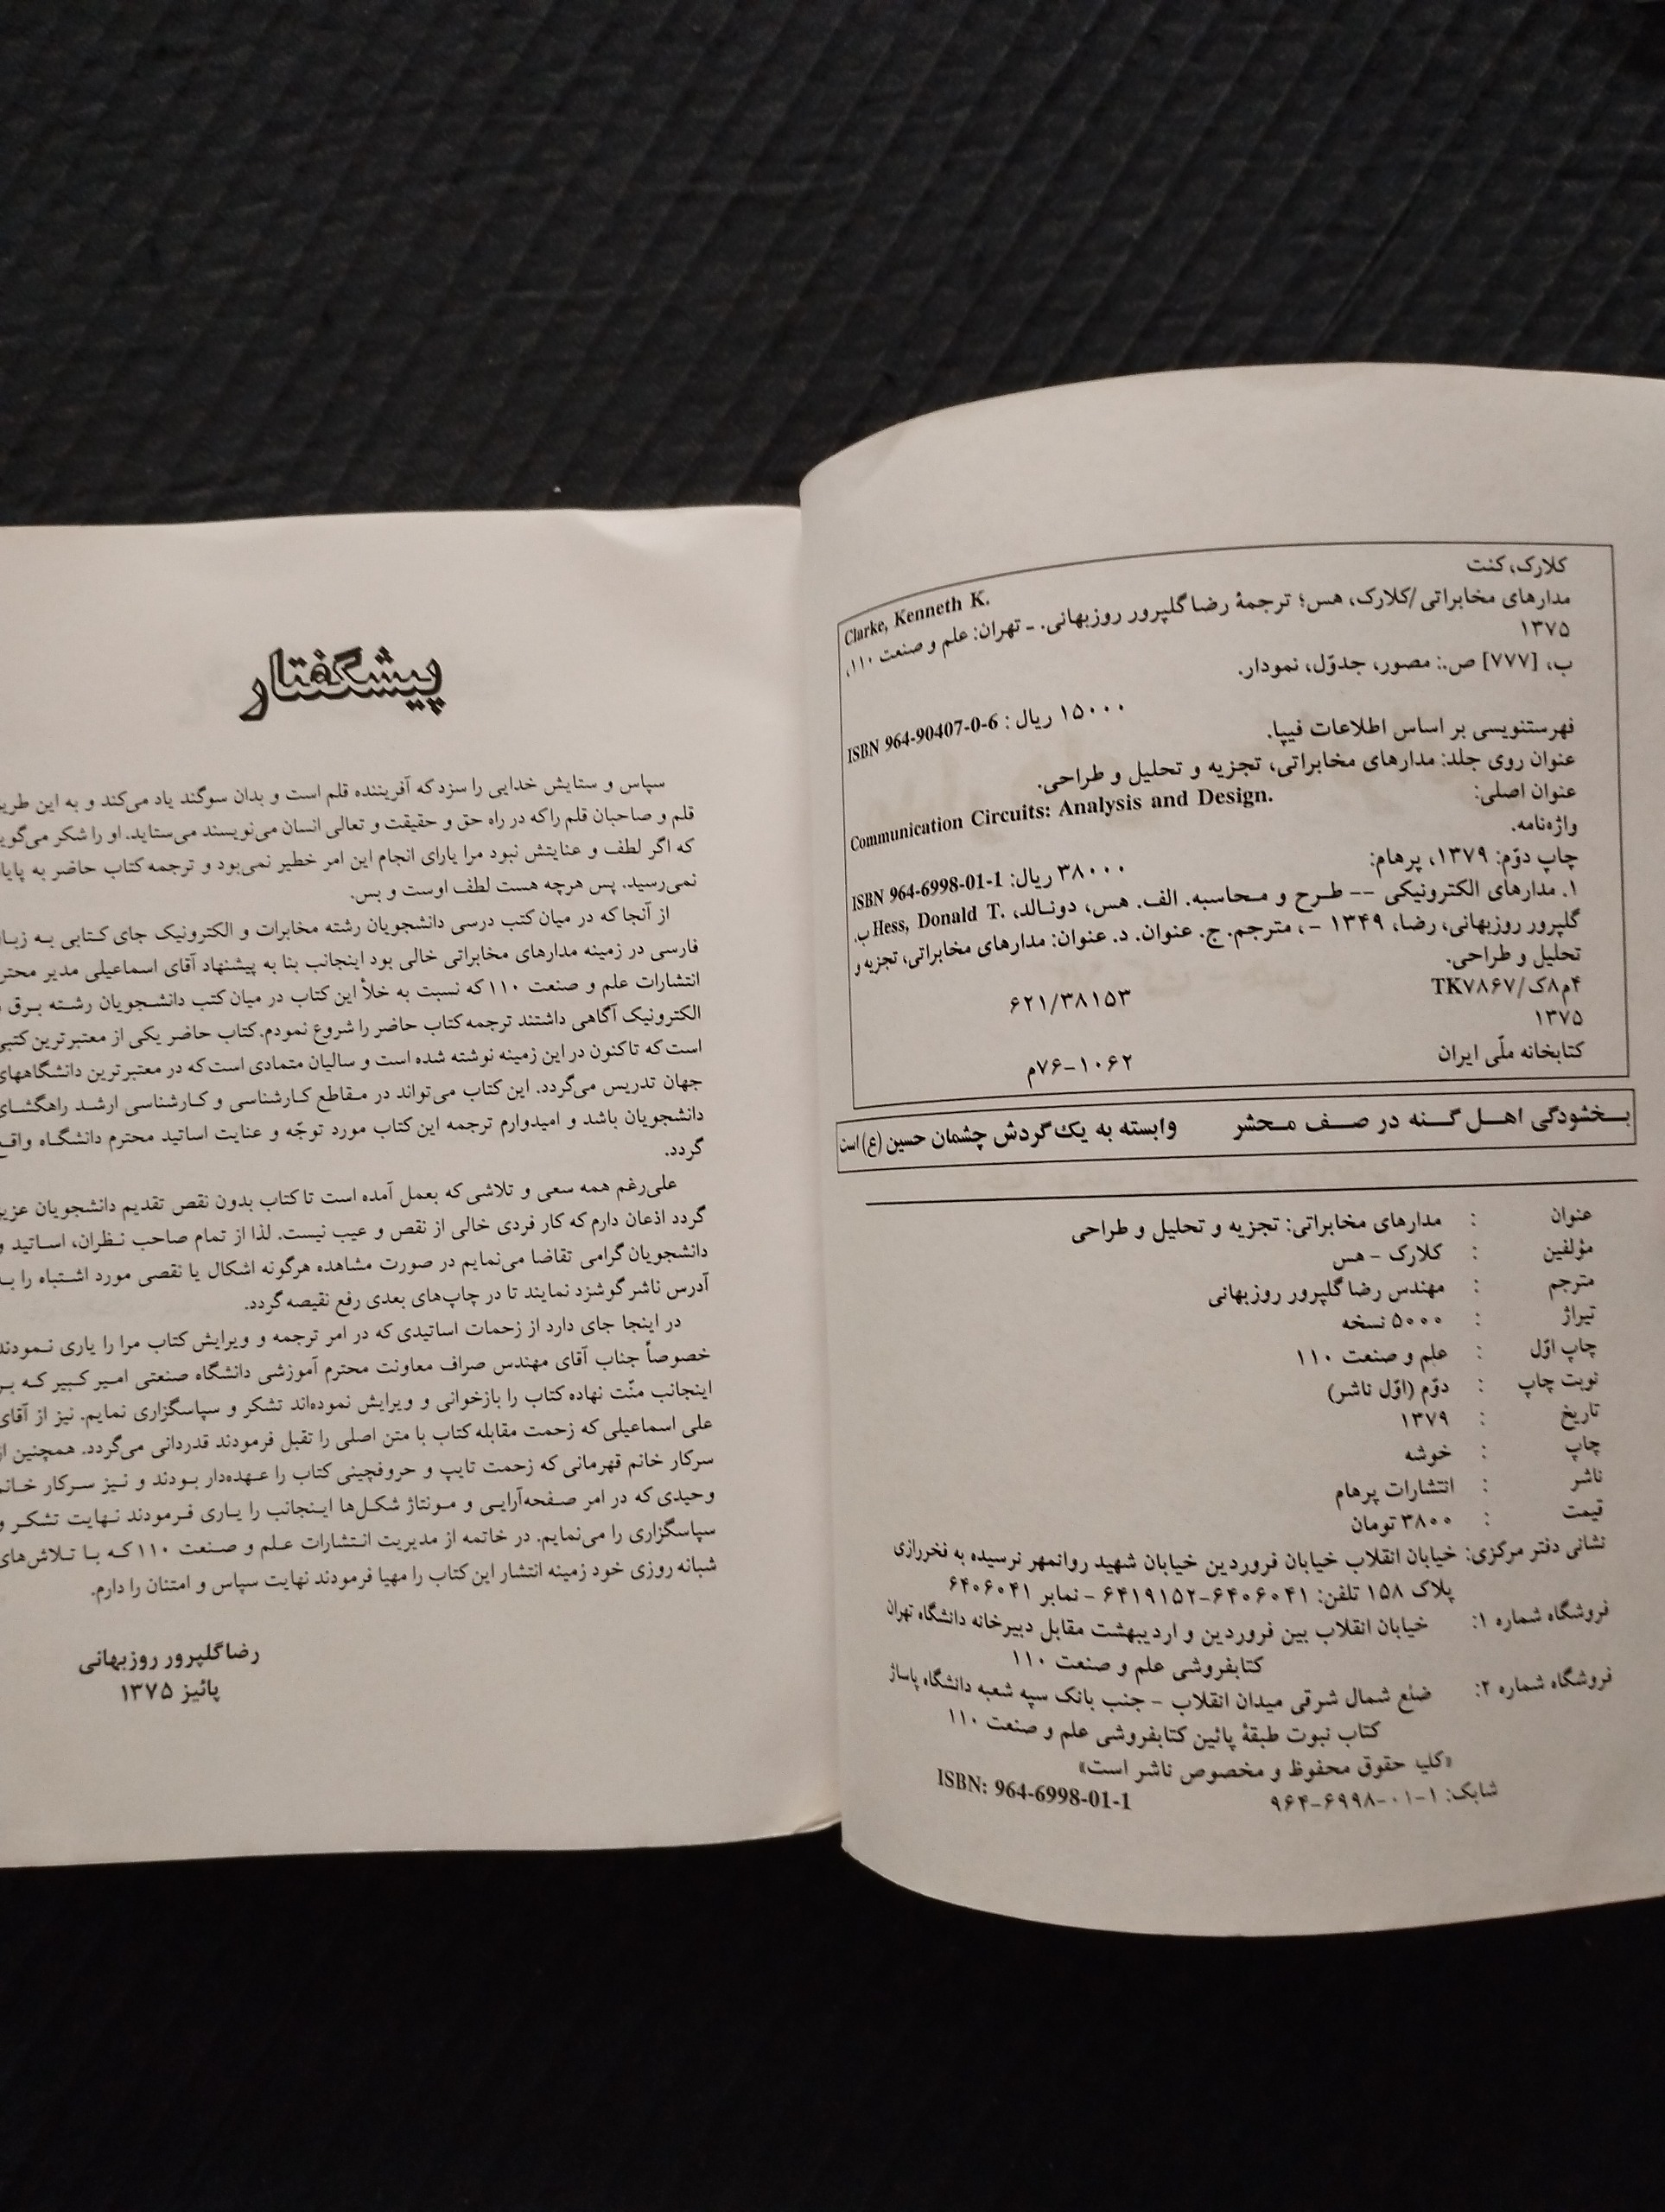 کلارک، کنت
Clarke, Kenneth K.
مدارهای مخابراتی/کلارک، هس؛ ترجمهٔ رضا گلپرور روزبهانی. ـ تهران: علم و صنعت ۱۱۰،
۱۳۷۵
ب، [۷۷۷] ص.: مصور، جدوّل، نمودار.
ISBN 964-90407-0-6 : ۱۵۰۰۰ ریال
فهرستنویسی بر اساس اطلاعات فیپا.
عنوان روی جلد: مدارهای مخابراتی، تجزیه و تحلیل و طراحی.
عنوان اصلی: Communication Circuits: Analysis and Design.
واژه‌نامه.
چاپ دوّم: ۱۳۷۹، پرهام:
ISBN 964-6998-01-1 :۳۸۰۰۰ ریال
۱. مدارهای الکترونیکی -- طرح و محاسبه. الف. هس، دونالد، .Hess, Donald T ب.
گلپرور روزبهانی، رضا، ۱۳۴۹ - ، مترجم. ج. عنوان. د. عنوان: مدارهای مخابراتی، تجزیه و
تحلیل و طراحی.
۴م۸ک/TK۷۸۶۷
۶۲۱/۳۸۱۵۳
۱۳۷۵
کتابخانه ملّی ایران
۱۰۶۲-۷۶م
بخشودگی اهل گنه در صف محشر وابسته به یک گردش چشمان حسین (ع) است
عنوان : مدارهای مخابراتی: تجزیه و تحلیل و طراحی
مؤلفین : کلارک - هس
مترجم : مهندس رضا گلپرور روزبهانی
تیراژ : ۵۰۰۰ نسخه
چاپ اوّل : علم و صنعت ۱۱۰
نوبت چاپ : دوّم (اوّل ناشر)
تاریخ : ۱۳۷۹
چاپ : خوشه
ناشر : انتشارات پرهام
قیمت : ۳۸۰۰ تومان
نشانی دفتر مرکزی: خیابان انقلاب خیابان فروردین خیابان شهید روانمهر نرسیده به فخررازی
پلاک ۱۵۸ تلفن: ۶۴۰۶۰۴۱-۶۴۱۹۱۵۲ - نمابر ۶۴۰۶۰۴۱
فروشگاه شماره ۱: خیابان انقلاب بین فروردین و اردیبهشت مقابل دبیرخانه دانشگاه تهران
کتابفروشی علم و صنعت ۱۱۰
فروشگاه شماره ۲: ضلع شمال شرقی میدان انقلاب - جنب بانک سپه شعبه دانشگاه پاساژ
کتاب نبوت طبقهٔ پائین کتابفروشی علم و صنعت ۱۱۰
«کلیه حقوق محفوظ و مخصوص ناشر است»
شابک: ۱-۰۱-۶۹۹۸-۹۶۴
ISBN: 964-6998-01-1
پیشگفتار
سپاس و ستایش خدایی را سزد که آفریننده قلم است و بدان سوگند یاد می‌کند و به این
قلم و صاحبان قلم را که در راه حق و حقیقت و تعالی انسان می‌نویسند می‌ستاید. او را شکر
که اگر لطف و عنایتش نبود مرا یارای انجام این امر خطیر نمی‌بود و ترجمه کتاب حاضر به
نمی‌رسید. پس هرچه هست لطف اوست و بس.
از آنجا که در میان کتب درسی دانشجویان رشته مخابرات و الکترونیک جای کتابی به
فارسی در زمینه مدارهای مخابراتی خالی بود اینجانب بنا به پیشنهاد آقای اسماعیلی مدیر
انتشارات علم و صنعت ۱۱۰ که نسبت به خلأ این کتاب در میان کتب دانشجویان رشته برق
الکترونیک آگاهی داشتند ترجمه کتاب حاضر را شروع نمودم. کتاب حاضر یکی از معتبرترین
است که تاکنون در این زمینه نوشته شده است و سالیان متمادی است که در معتبرترین دانشگاههای
جهان تدریس می‌گردد. این کتاب می‌تواند در مقاطع کارشناسی و کارشناسی ارشد راهگشای
دانشجویان باشد و امیدوارم ترجمه این کتاب مورد توجّه و عنایت اساتید محترم دانشگاه
گردد.
علی‌رغم همه سعی و تلاشی که بعمل آمده است تا کتاب بدون نقص تقدیم دانشجویان عزیز
گردد اذعان دارم که کار فردی خالی از نقص و عیب نیست. لذا از تمام صاحب نظران، اساتید و
دانشجویان گرامی تقاضا می‌نمایم در صورت مشاهده هرگونه اشکال یا نقصی مورد اشتباه را
آدرس ناشر گوشزد نمایند تا در چاپ‌های بعدی رفع نقیصه گردد.
در اینجا جای دارد از زحمات اساتیدی که در امر ترجمه و ویرایش کتاب مرا یاری نمودند
خصوصاً جناب آقای مهندس صراف معاونت محترم آموزشی دانشگاه صنعتی امیر کبیر که بر
اینجانب منّت نهاده کتاب را بازخوانی و ویرایش نموده‌اند تشکر و سپاسگزاری نمایم. نیز از آقای
علی اسماعیلی که زحمت مقابله کتاب با متن اصلی را تقبل فرمودند قدردانی می‌گردد. همچنین از
سرکار خانم قهرمانی که زحمت تایپ و حروفچینی کتاب را عهده‌دار بودند و نیز سرکار خانم
وحیدی که در امر صفحه‌آرایی و مونتاژ شکل‌ها اینجانب را یاری فرمودند نهایت تشکر و
سپاسگزاری را می‌نمایم. در خاتمه از مدیریت انتشارات علم و صنعت ۱۱۰ که با تلاش‌های
شبانه روزی خود زمینه انتشار این کتاب را مهیا فرمودند نهایت سپاس و امتنان را دارم.
رضا گلپرور روزبهانی
پائیز ۱۳۷۵